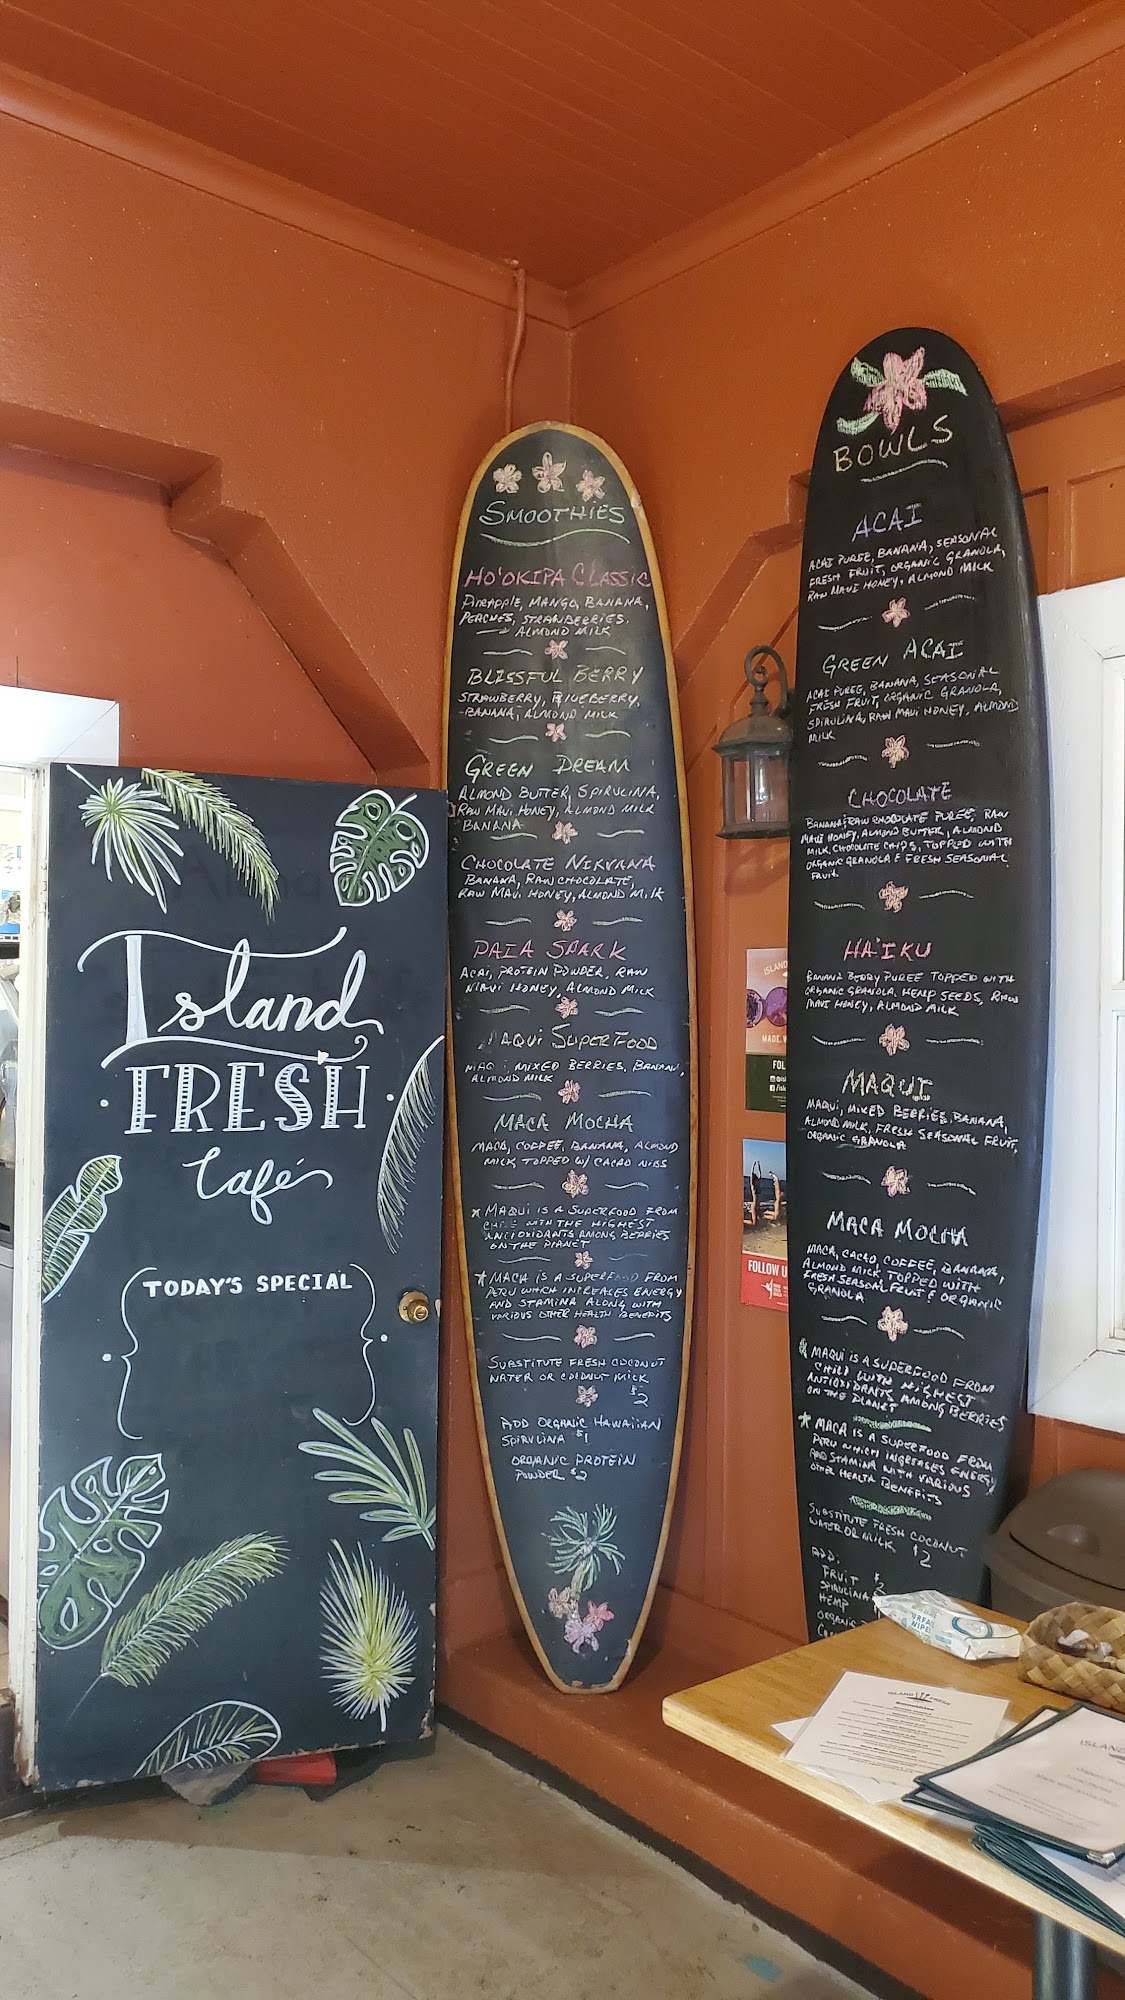 Island
FRESH
Café
TODAY'S SPECIAL
SMOOTHIES
HO'OKIPA CLASSIC
PINEAPPLE, MANGO, BANANA,
PEACHES, STRAWBERRIES,
ALMOND MILK
BLISSFUL BERRY
STRAWBERRY, BLUEBERRY,
BANANA, ALMOND MILK
GREEN DREAM
ALMOND BUTTER, SPIRULINA,
RAW MAUI HONEY, ALMOND MILK
BANANA
CHOCOLATE NIRVANA
BANANA, RAW CHOCOLATE,
RAW MAUI HONEY, ALMOND MILK
PAIA SPARK
ACAI, PROTEIN POWDER, RAW
MAUI HONEY, ALMOND MILK
MAQUI SUPERFOOD
MAQUI, MIXED BERRIES, BANANA,
ALMOND MILK
MACA MOCHA
MACA, COFFEE, BANANA, ALMOND
MILK TOPPED W/ CACAO NIBS
* MAQUI IS A SUPERFOOD FROM
CHILE WITH THE HIGHEST
ANTIOXIDANTS AMONG BERRIES
ON THE PLANET
* MACA IS A SUPERFOOD FROM
PERU WHICH INCREASES ENERGY
AND STAMINA ALONG WITH
VARIOUS OTHER HEALTH BENEFITS
SUBSTITUTE FRESH COCONUT
WATER OR COCONUT MILK
$2
ADD ORGANIC HAWAIIAN
SPIRULINA $1
ORGANIC PROTEIN
POWDER $2
BOWLS
ACAI
ACAI PUREE, BANANA, SEASONAL
FRESH FRUIT, ORGANIC GRANOLA,
RAW MAUI HONEY, ALMOND MILK
GREEN ACAI
ACAI PUREE, BANANA, SEASONAL
FRESH FRUIT, ORGANIC GRANOLA,
SPIRULINA, RAW MAUI HONEY, ALMOND
MILK
CHOCOLATE
BANANA, RAW CHOCOLATE PUREE, RAW
MAUI HONEY, ALMOND BUTTER, ALMOND
MILK, CHOCOLATE CHIPS, TOPPED WITH
ORGANIC GRANOLA & FRESH SEASONAL
FRUIT.
HA'IKU
BANANA BERRY PUREE TOPPED WITH
ORGANIC GRANOLA, HEMP SEEDS, RAW
MAUI HONEY, ALMOND MILK
MAQUI
MAQUI, MIXED BERRIES, BANANA,
ALMOND MILK, FRESH SEASONAL FRUIT,
ORGANIC GRANOLA
MACA MOCHA
MACA, CACAO, COFFEE, BANANA,
ALMOND MILK, TOPPED WITH
FRESH SEASONAL FRUIT & ORGANIC
GRANOLA
MAQUI IS A SUPERFOOD FROM
CHILE WITH HIGHEST
ANTIOXIDANTS AMONG BERRIES
ON THE PLANET
* MACA IS A SUPERFOOD FROM
PERU WHICH INCREASES ENERGY
AND STAMINA WITH VARIOUS
OTHER HEALTH BENEFITS
SUBSTITUTE FRESH COCONUT
WATER OR MILK $2
ADD:
FRUIT $2
SPIRULINA
HEMP
ORGANIC
ISLAND
MADE.W
FOL
FOLLOW U
ISLAND FRESH
Smoothies
ISLAND